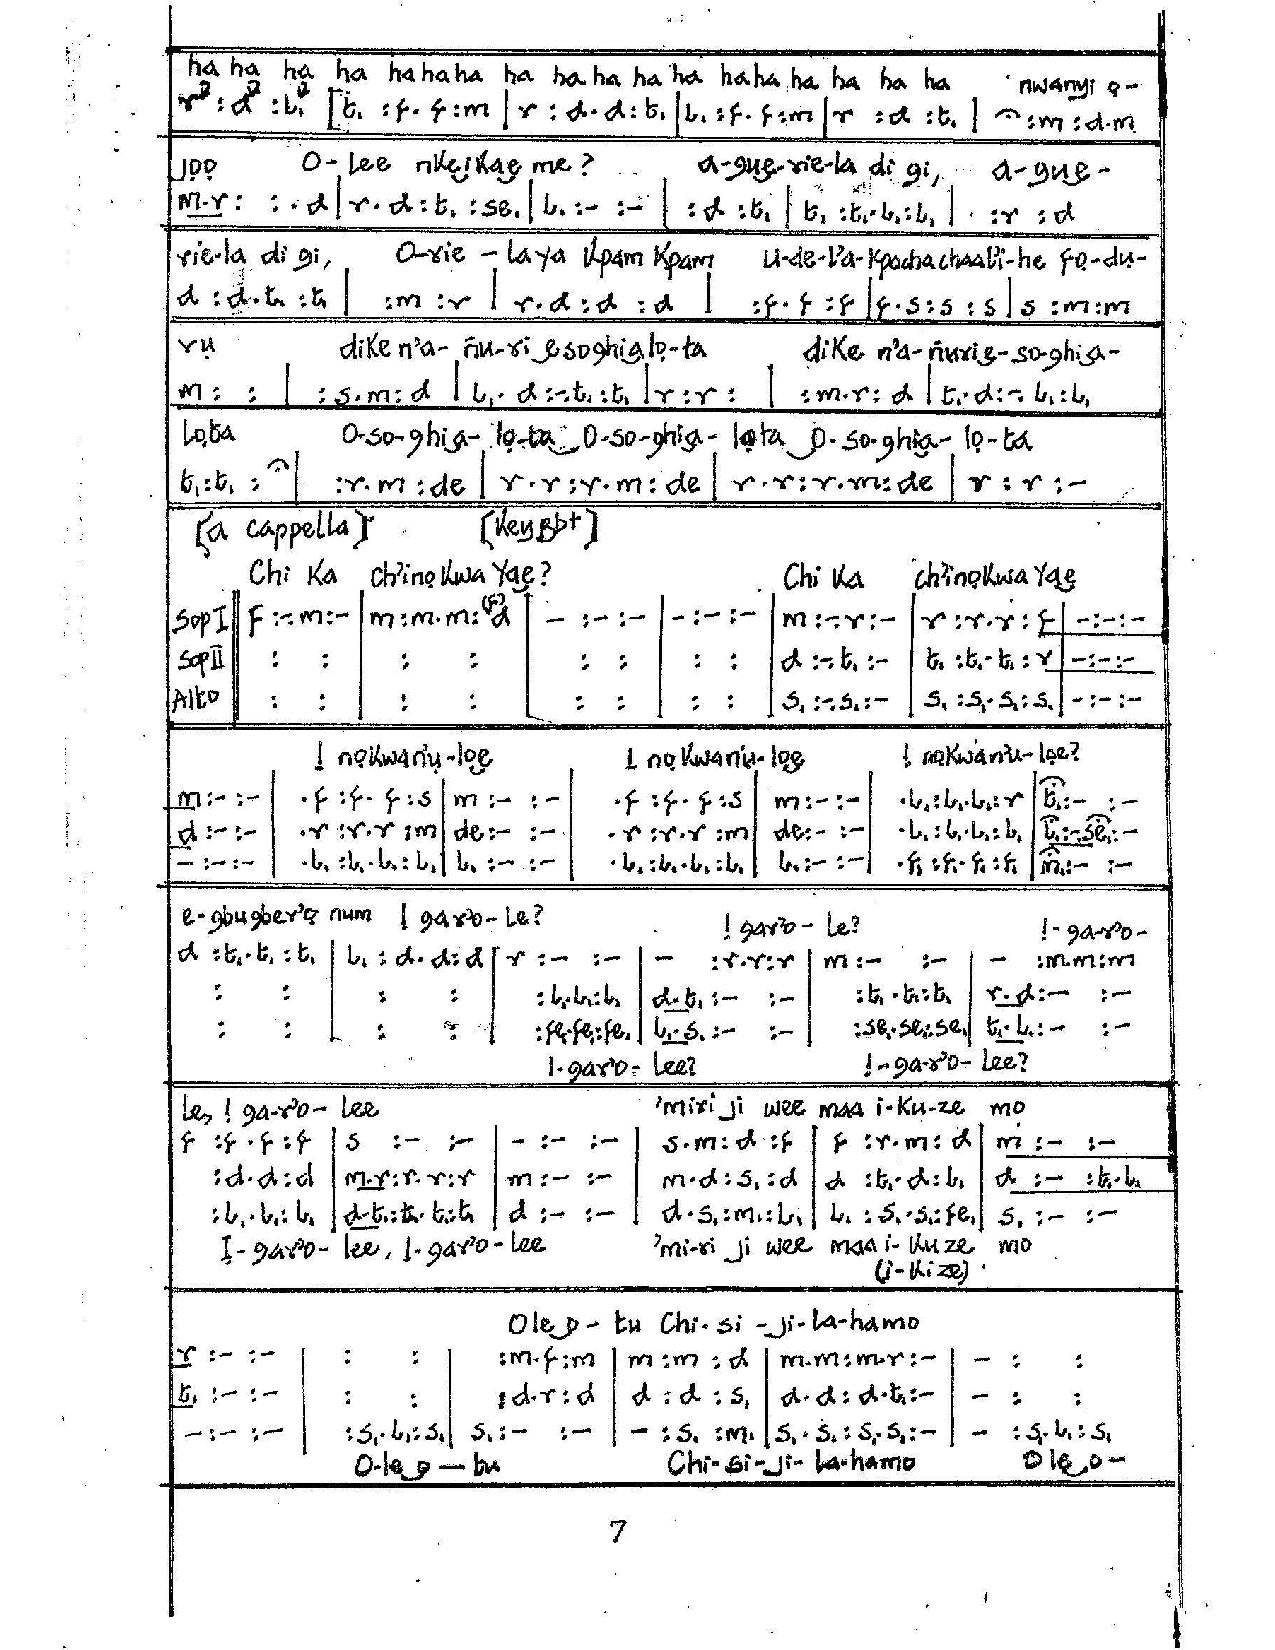 ha ha ha ha ha ha ha ha ha ha ha ha ha ha ha ha ha ha nwanyị ọ-
r² : d² : l₁² [t₁ : f . f : m | r : d . d : t₁ | l₁ : f . f : m | r : d : t₁ | : m : d . m
jọọ O- lee nkeịkae me ? a-gụe-rie-la di gi, a-gụe-
m . r : : . d | r . d : t₁ : se₁ | l₁ : - : - | : d : t₁ | t₁ : t₁ . l₁ : l₁ | . : r : d
rie-la di gi, O-rie - la ya kpam kpam u-de-l'a-kpochachaali-he fo-du-
d : d . t₁ : t₁ | : m : r | r . d : d : d | : f . f : f | f . s : s : s | s : m : m
rụ dike n'a- ñu-ri esoghịa lọ-ta dike n'a-ñurie-so-ghịa-
m : : | : s . m : d | l₁ . d : - . t₁ : t₁ | r : r : | : m . r : d | t₁ . d : - . l₁ : l₁
lọta O-so-ghịa- lọ-ta O-so-ghịa- lọta O-so-ghịa- lọ-ta
t₁ : t₁ : | : r . m : de | r . r : r . m : de | r . r : r . m : de | r : r : -
[a cappella] [Key Bb+]
Chi Ka ch'inọkwa Yae ? Chi Ka ch'inọkwa Yae
Sop I f : - . m : - | m : m . m : (f) d | - : - : - | - : - : - | m : - . r : - | r : r . r : f | - : - : -
Sop II : : | : : | : : | : : | d : - . t₁ : - | t₁ : t₁ . t₁ : r | - : - : -
Alto : : | : : | : : | : : | s₁ : - . s₁ : - | s₁ : s₁ . s₁ : s₁ | - : - : -
Ị nọkwan'ụ-lọe Ị nọkwan'ụ-lọe Ị nọkwan'ụ-lọe?
m : - : - | . f : f . f : s | m : - : - | . f : f . f : s | m : - : - | . l₁ : l₁ . l₁ : r | t₁ : - : -
d : - : - | . r : r . r : m | de : - : - | . r : r . r : m | de : - : - | . l₁ : l₁ . l₁ : l₁ | t₁ : - . se₁ : -
- : - : - | . l₁ : l₁ . l₁ : l₁ | l₁ : - : - | . l₁ : l₁ . l₁ : l₁ | l₁ : - : - | . f₁ : f₁ . f₁ : f₁ | m₁ : - : -
e-gbugber'ọ num Ị gar'o- le? Ị gar'o- le? Ị-ga-r'o-
d : t₁ . t₁ : t₁ | l₁ : d . d : d | r : - : - | - : r . r : r | m : - : - | - : m . m : m
: : | : : | : l₁ . l₁ : l₁ | d . t₁ : - : - | : t₁ . t₁ : t₁ | r . d : - : -
: : | : : | : fe₁ . fe₁ : fe₁ | l₁ . s₁ : - : - | : se₁ . se₁ : se₁ | t₁ . l₁ : - : -
Ị-gar'o- lee? Ị-ga-r'o- lee?
le, Ị ga-r'o- lee 'miri ji wee maa i-ku-ze mo
f : f . f : f | s : - : - | - : - : - | s . m : d : f | f : r . m : d | m : - : -
: d . d : d | m . r : r . r : r | m : - : - | m . d : s₁ : d | d : t₁ . d : l₁ | d : - : t₁ . l₁
: l₁ . l₁ : l₁ | d . t₁ : t₁ . t₁ : t₁ | d : - : - | d . s₁ : m₁ : l₁ | l₁ : s₁ . s₁ : fe₁ | s₁ : - : -
Ị-gar'o- lee, Ị-gar'o-lee 'mi-ri ji wee maa i- ku ze mo
(i-kize)
Ole o- tu Chi- si -ji-la-hamo
r : - : - | : : | : m . f : m | m : m : d | m . m : m . r : - | - : :
t₁ : - : - | : : | : d . r : d | d : d : s₁ | d . d : d . t₁ : - | - : :
- : - : - | : s₁ . l₁ : s₁ | s₁ : - : - | - : s₁ : m₁ | s₁ . s₁ : s₁ . s₁ : - | - : s₁ . l₁ : s₁
O-le o - tu Chi-si-ji- la-hamo Ole o-
7